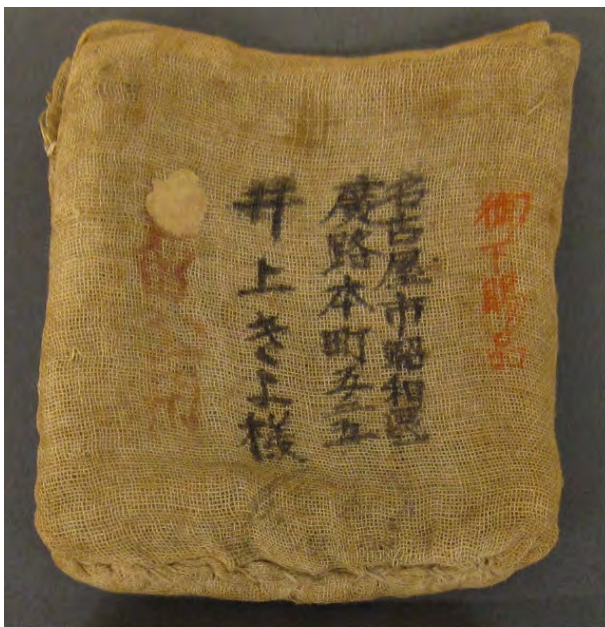 御下賜品
名古屋市昭和區
廣路本町五ノ五
井上きよ様